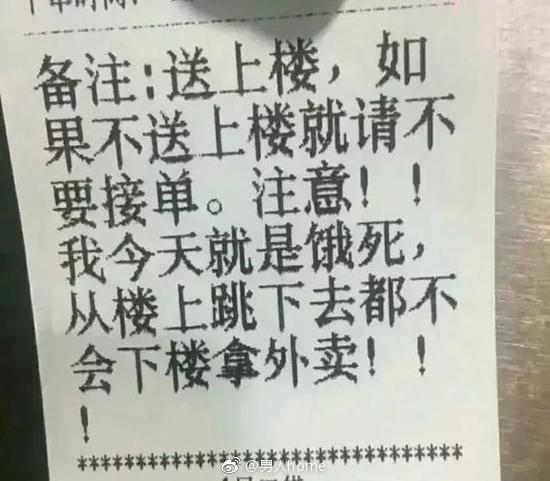 备注:送上楼，如
果不送上楼就请不
要接单。注意！！
我今天就是饿死，
从楼上跳下去都不
会下楼拿外卖！！
！
********************************
@男人home